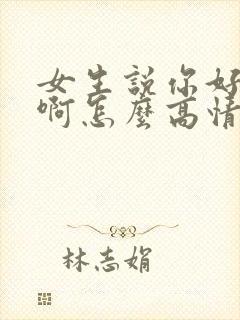 女生說你好
啊怎麼高情
林志娟